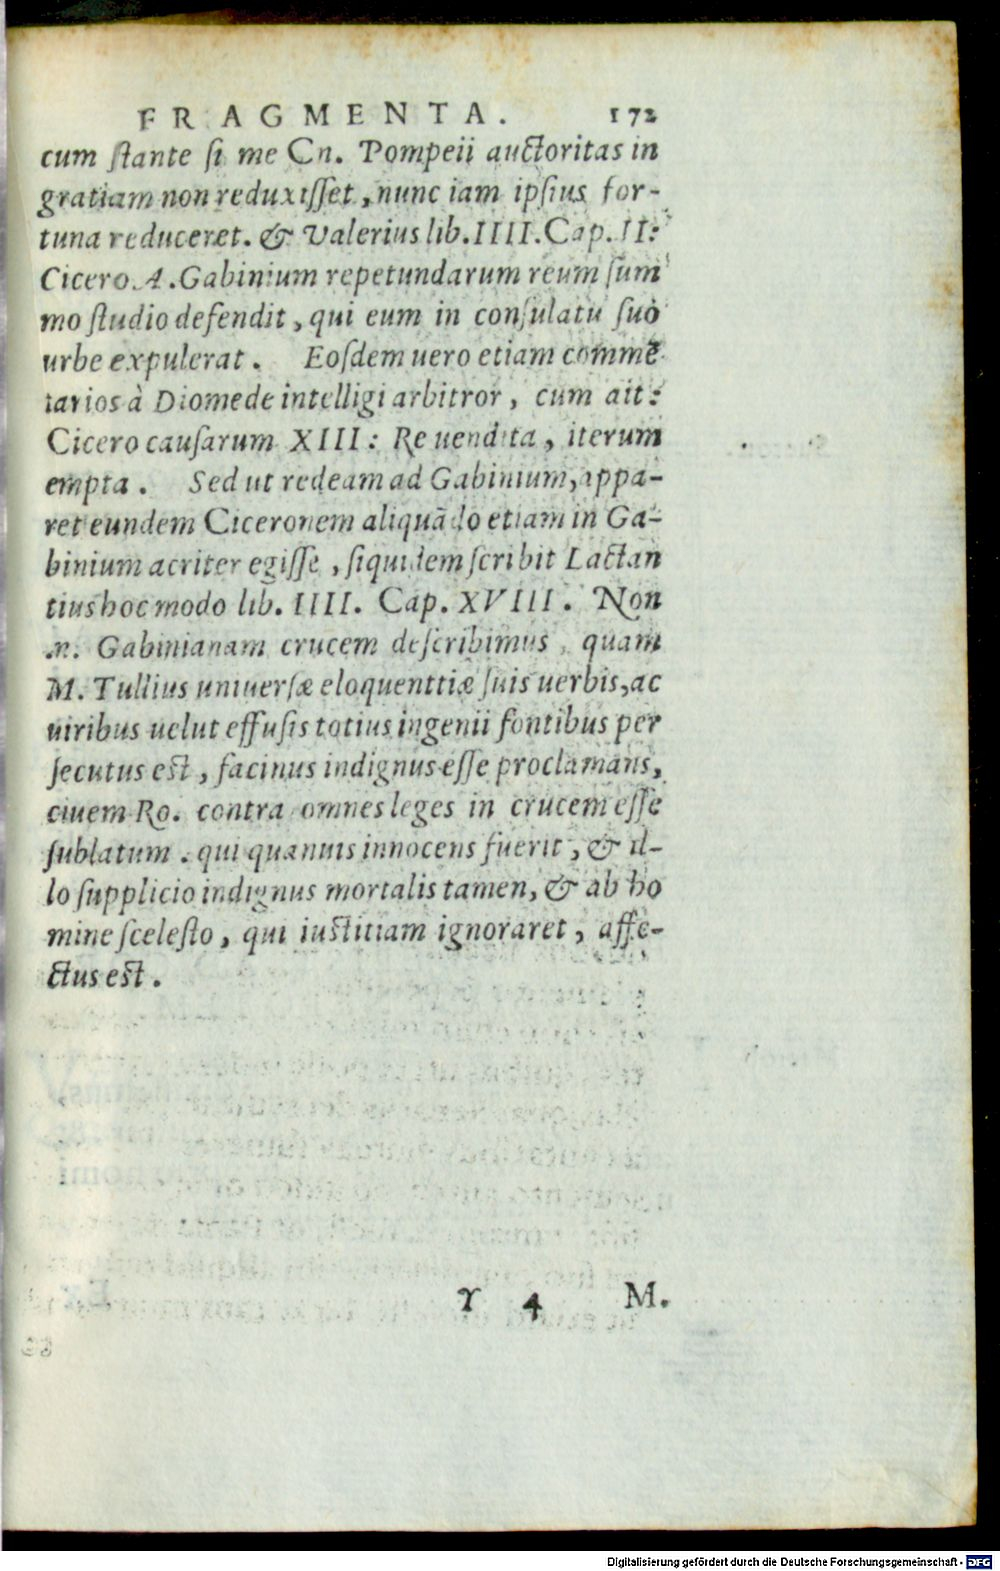 FRAGMENTA. 172
cum stante si me Cn. Pompeii auctoritas in
gratiam non reduxisset, nunc iam ipsius for-
tuna reduceret. & Valerius lib. IIII. Cap. II:
Cicero A. Gabinium repetundarum reum sum
mo studio defendit, qui eum in consulatu suo
urbe expulerat. Eosdem uero etiam commē
tarios à Diomede intelligi arbitror, cum ait:
Cicero causarum XIII: Re uendita, iterum
empta. Sed ut redeam ad Gabinium, appa-
ret eundem Ciceronem aliquādo etiam in Ga-
binium acriter egisse, siquidem scribit Lactan
tius hoc modo lib. IIII. Cap. XVIII. Non
.n. Gabinianam crucem describimus, quam
M. Tullius uniuersæ eloquenttiæ suis uerbis, ac
uiribus uelut effusis totius ingenii fontibus per
secutus est, facinus indignus esse proclamans,
ciuem Ro. contra omnes leges in crucem esse
sublatum. qui quanuis innocens fuerit, & il-
lo supplicio indignus mortalis tamen, & ab ho
mine scelesto, qui iustitiam ignoraret, affe-
ctus est.
Y 4 M.
Digitalisierung gefördert durch die Deutsche Forschungsgemeinschaft - DFG